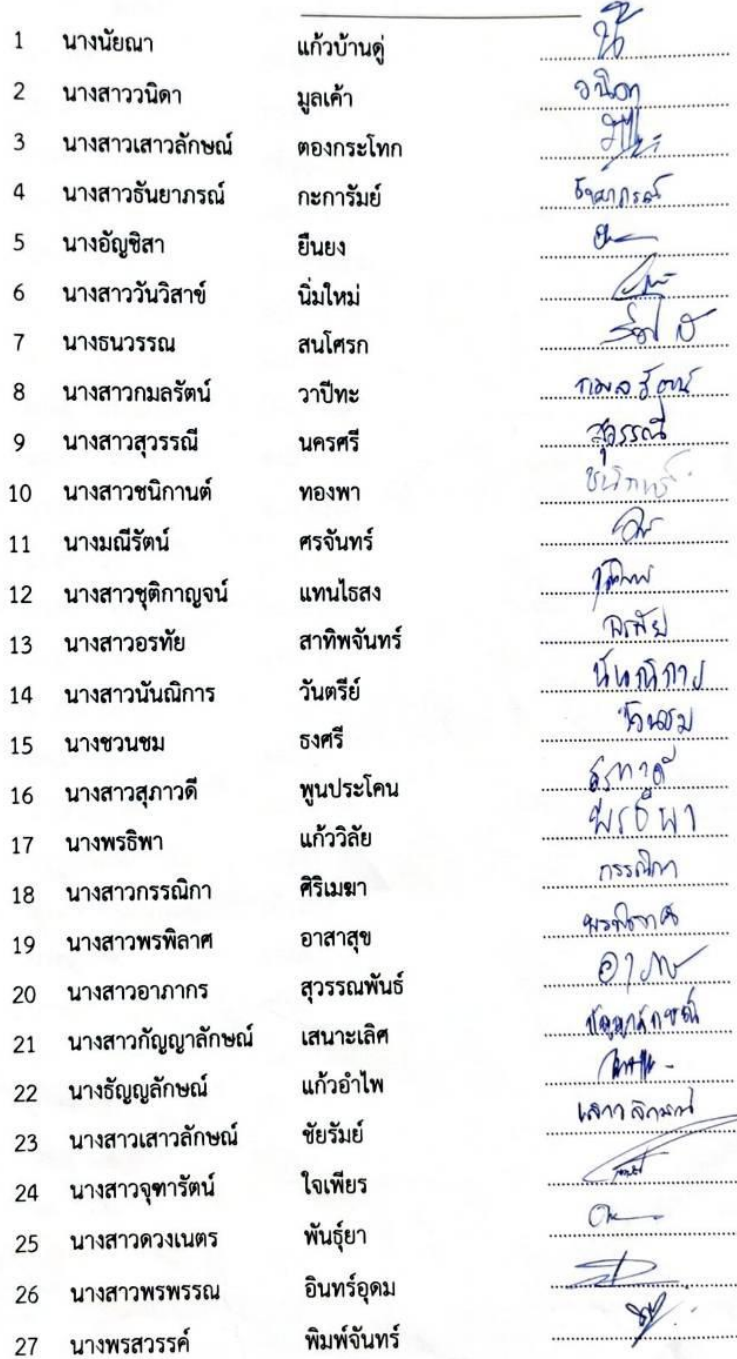 1 นางนัยณา แก้วบ้านดู่
2 นางสาววนิดา มูลเค้า วนิดา
3 นางสาวเสาวลักษณ์ ตองกระโทก
4 นางสาวธันยาภรณ์ กะการัมย์ ธันยาภรณ์
5 นางอัญชิสา ยืนยง
6 นางสาววันวิสาข์ นิ่มใหม่
7 นางธนวรรณ สนโศรก
8 นางสาวกมลรัตน์ วาปีทะ กมลรัตน์
9 นางสาวสุวรรณี นครศรี สุวรรณี
10 นางสาวชนิกานต์ ทองพา ชนิกานต์
11 นางมณีรัตน์ ศรจันทร์
12 นางสาวชุติกาญจน์ แทนไธสง
13 นางสาวอรทัย สาทิพจันทร์ อรทัย
14 นางสาวนันณิการ วันตรีย์ นันณิการ
15 นางชวนชม ธงศรี ชวนชม
16 นางสาวสุภาวดี พูนประโคน
17 นางพรธิพา แก้ววิลัย พรธิพา
18 นางสาวกรรณิกา ศิริเมฆา กรรณิกา
19 นางสาวพรพิลาศ อาสาสุข พรพิลาศ
20 นางสาวอาภากร สุวรรณพันธ์
21 นางสาวกัญญาลักษณ์ เสนาะเลิศ กัญญาลักษณ์
22 นางธัญญลักษณ์ แก้วอำไพ
23 นางสาวเสาวลักษณ์ ชัยรัมย์ เสาวลักษณ์
24 นางสาวจุฑารัตน์ ใจเพียร
25 นางสาวดวงเนตร พันธุ์ยา
26 นางสาวพรพรรณ อินทร์อุดม
27 นางพรสวรรค์ พิมพ์จันทร์